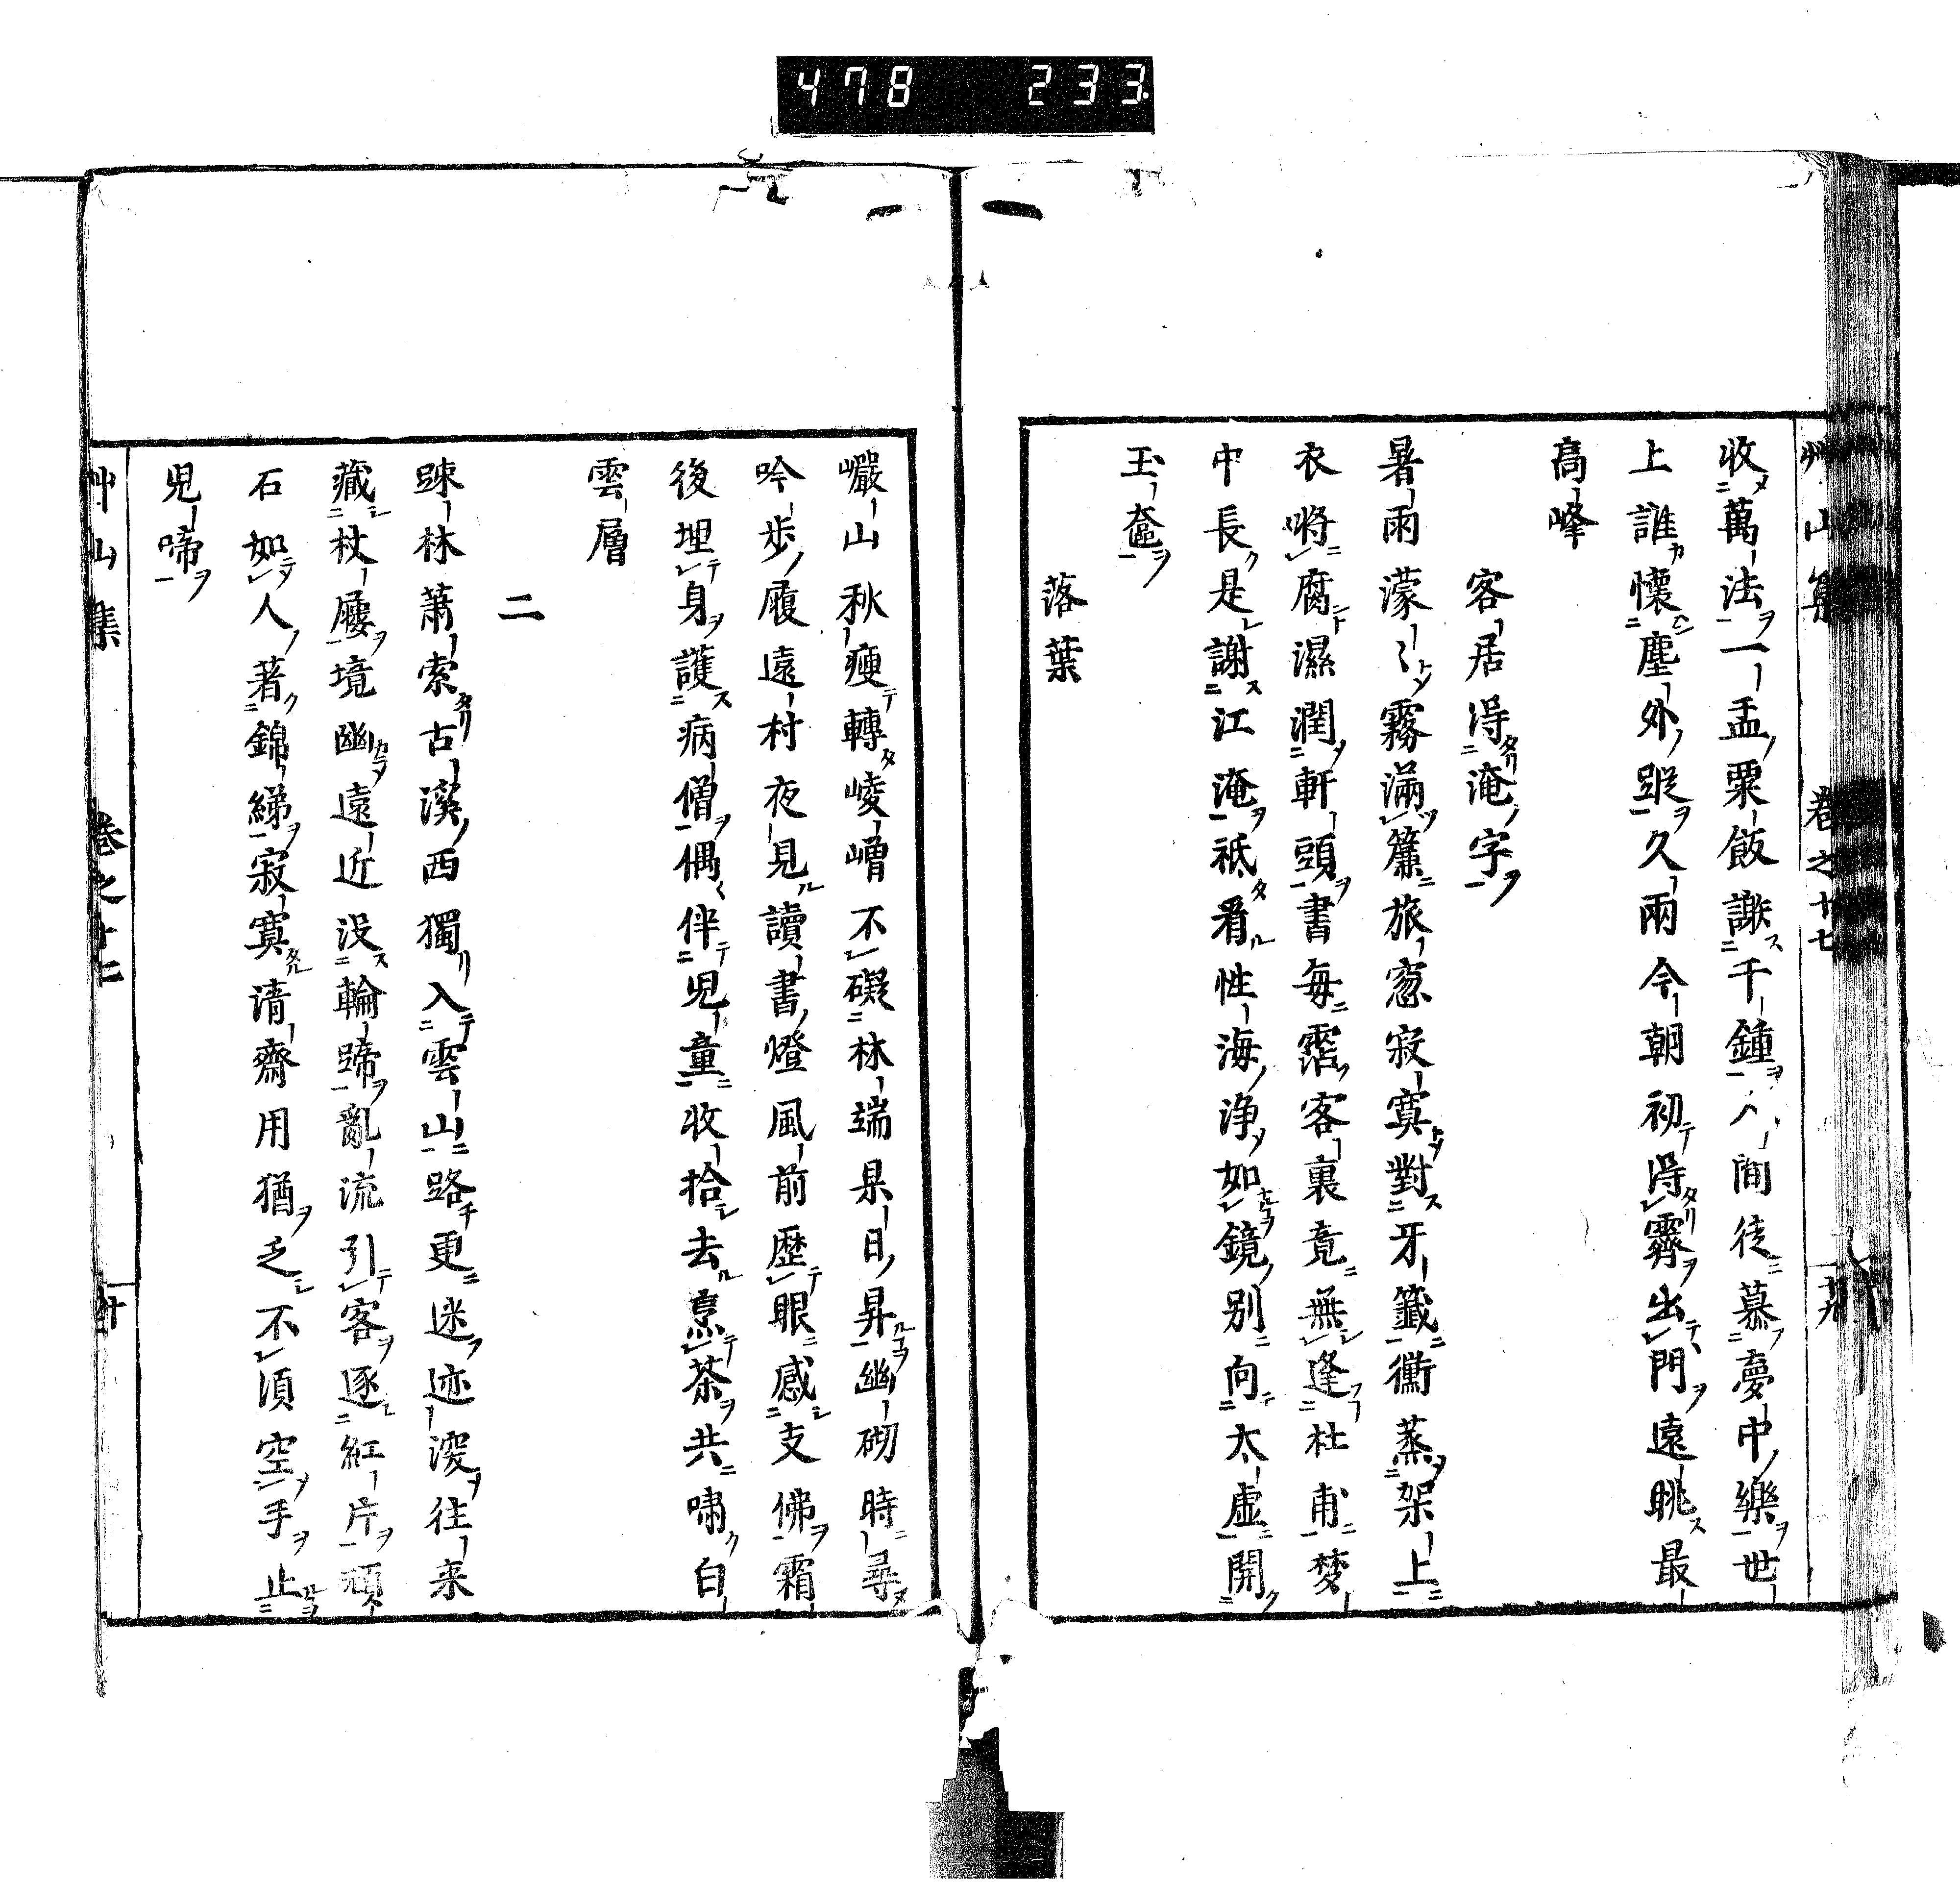 478 233
艸山集 卷之十七 十九
收萬法一盂粟飯謝千鍾人間徒慕夢中樂世
上誰懷塵外蹤久雨今朝初得霽出門遠眺最
高峰
客居得淹字
暑雨濛〻霧滿簾旅窓寂寞對牙籤衢蒸架上
衣將腐濕潤軒頭書每霑客裏竟無逢杜甫夢
中長是謝江淹祗看性海淨如鏡別向太虛開
玉奩
落葉
巖山秋瘦轉崚嶒不礙林端杲日昇幽砌時尋
吟步履遠村夜見讀書燈風前歷眼感支佛霜
後埋身護病僧偶伴兒童收拾去烹茶共嘯白
雲層
二
踈林蕭索古溪西獨入雲山路更迷迹深往來
藏杖屨境幽遠近沒輪蹄亂流引客逐紅片頑
石如人著錦綈寂寞清齋用猶乏不須空手止
兒啼
艸山集 卷之十七 廿